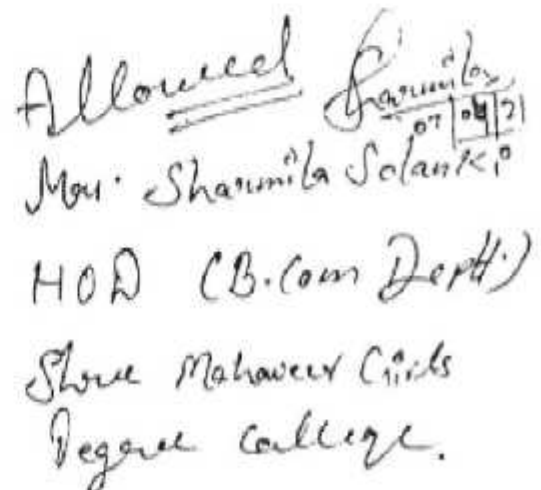 Allowed Sharmila
07/04/21
Mrs. Sharmila Solanki
HOD (B.Com Deptt.)
Shree Mahaveer Girls
Degree College.